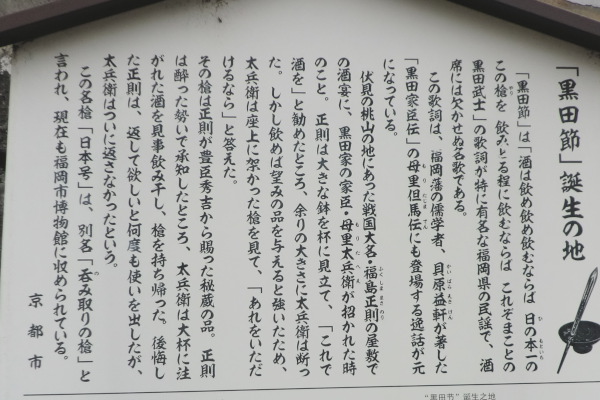 「黒田節」誕生の地
「黒田節」は「酒は飲め飲め飲むならば 日の本一の
この槍を 飲みとる程に飲むならば これぞまことの
黒田武士」の歌詞が特に有名な福岡県の民謡で、酒
席には欠かせぬ名歌である。
この歌詞は、福岡藩の儒学者、貝原益軒が著した
「黒田家臣伝」の母里但馬伝にも登場する逸話が元
になっている。
伏見の桃山の地にあった戦国大名・福島正則の屋敷で
の酒宴に、黒田家の家臣・母里太兵衛が招かれた時
のこと。正則は大きな鉢を杯に見立て、「これで
酒を」と勧めたところ、余りの大きさに太兵衛は断っ
た。しかし飲めば望みの品を与えると強いたため、
太兵衛は座上に架かった槍を見て、「あれをいただ
けるなら」と答えた。
その槍は正則が豊臣秀吉から賜った秘蔵の品。正則
は酔った勢いで承知したところ、太兵衛は大杯に注
がれた酒を見事飲み干し、槍を持ち帰った。後悔し
た正則は、返して欲しいと何度も使いを出したが、
太兵衛はついに返さなかったという。
この名槍「日本号」は、別名「呑み取りの槍」と
言われ、現在も福岡市博物館に収められている。
京都市
“黒田节”诞生之地